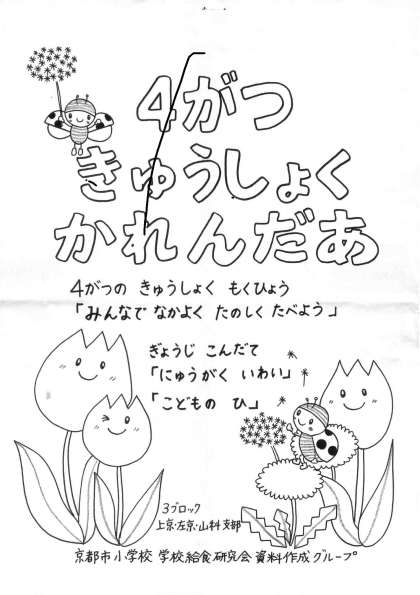 4がつ
きゅうしょく
かれんだあ
4がつの きゅうしょく もくひょう
「みんなで なかよく たのしく たべよう」
ぎょうじ こんだて
「にゅうがく いわい」
「こどもの ひ」
3ブロック
上京・左京・山科支部
京都市小学校 学校給食研究会 資料作成グループ